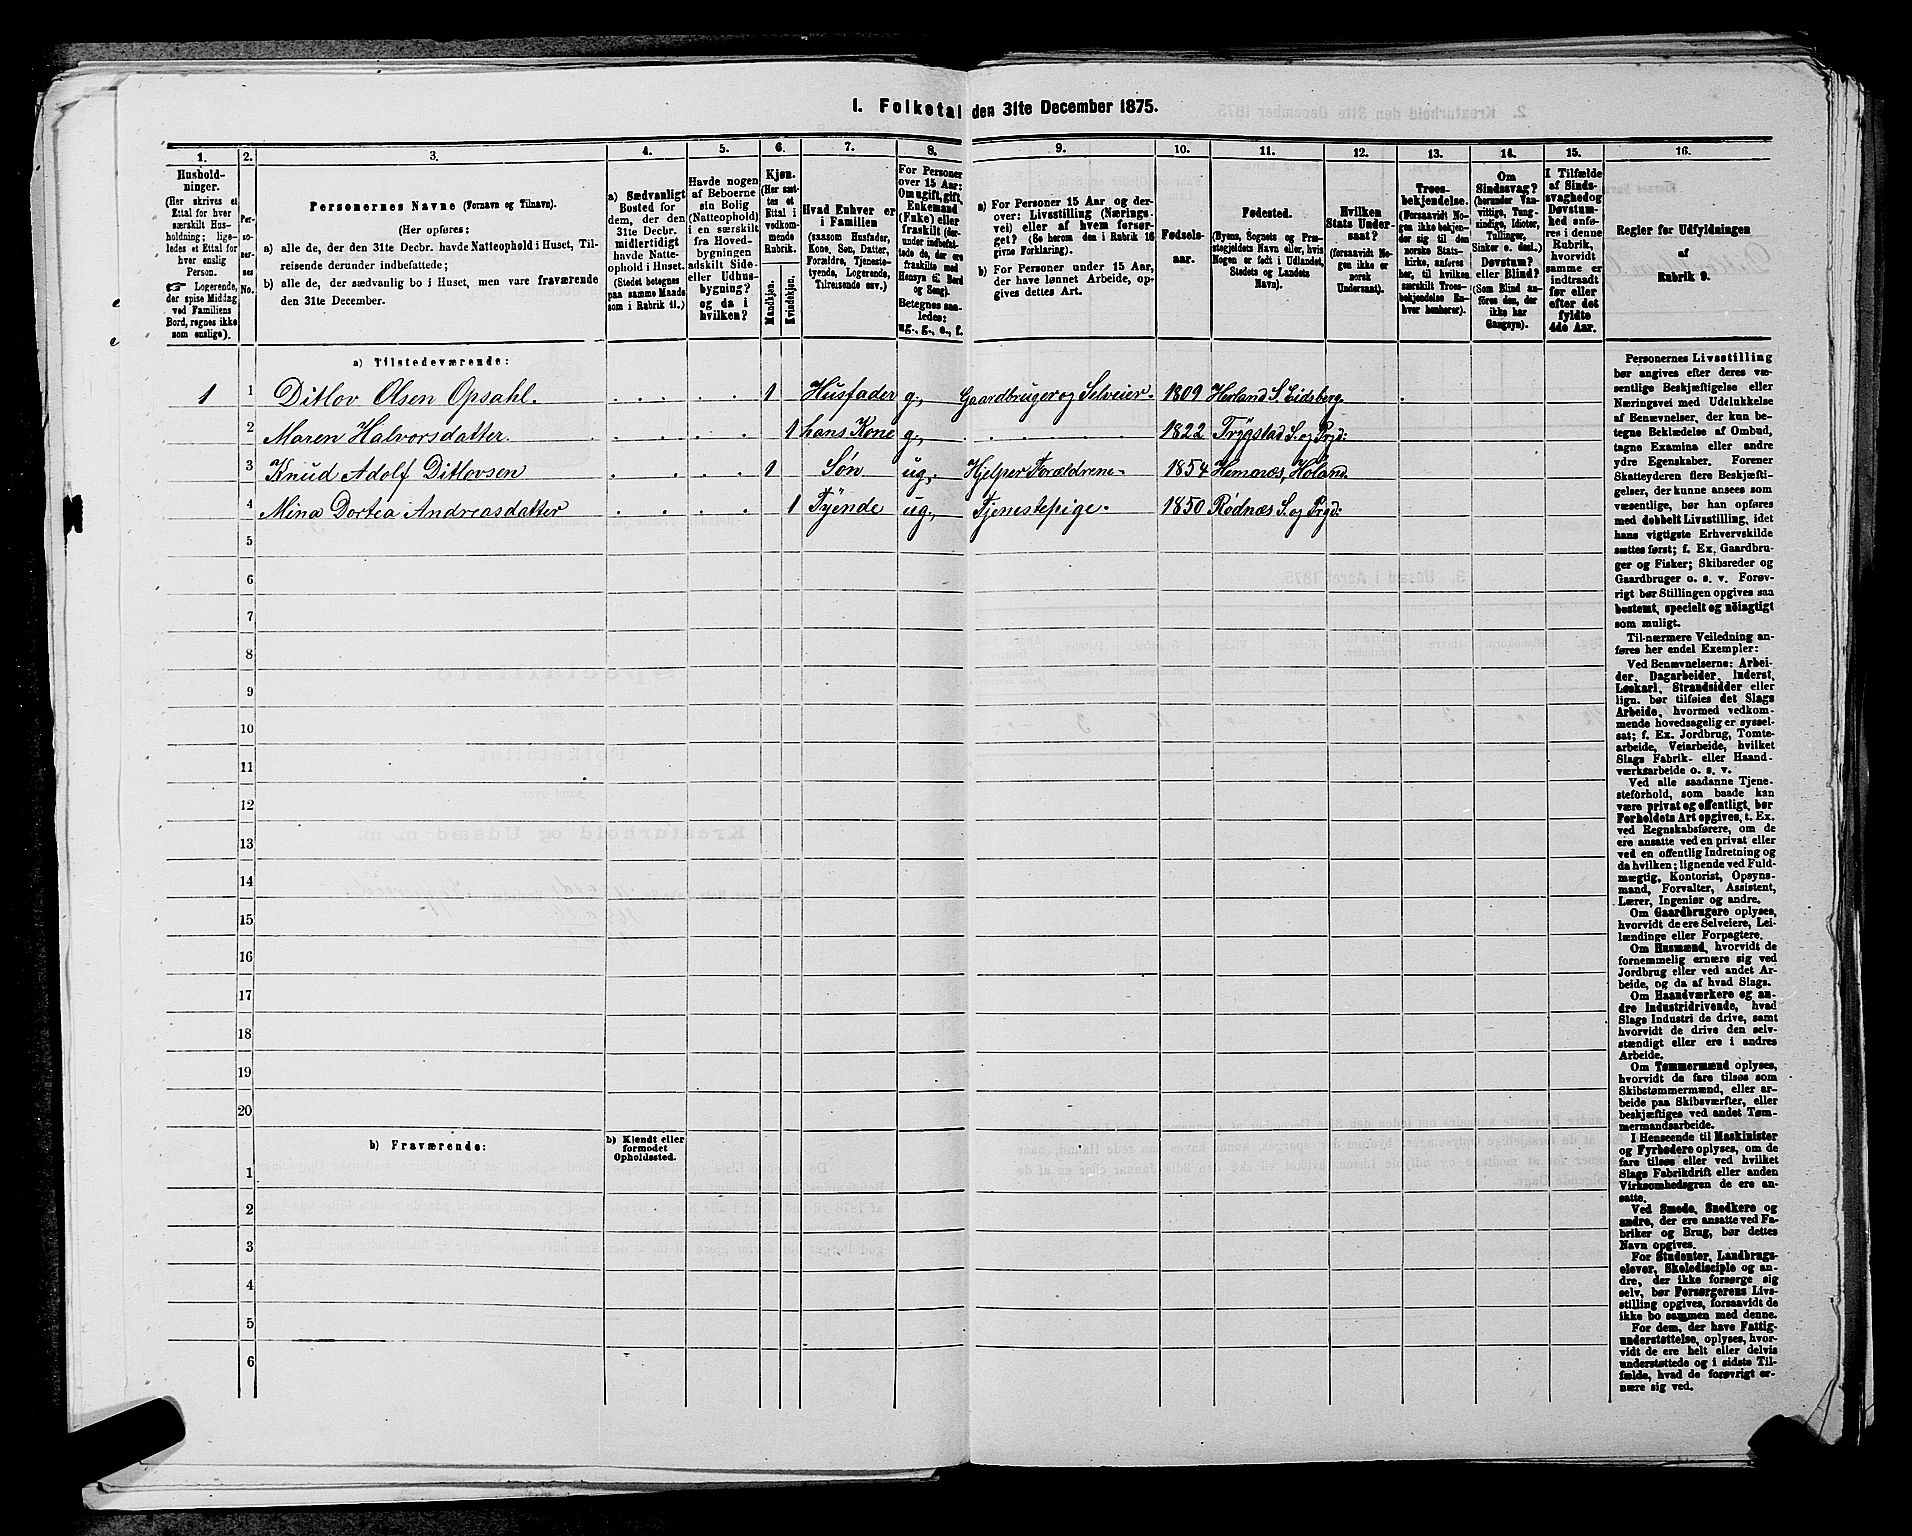 1. Folketal den 31te December 1875.
1. 2. 3. 4. 5. 6. 7. 8. 9. 10. 11. 12. 13. 14. 15. 16.
Hushold-
ninger.
(Her skrives et
Ettal for hver
særskilt Hus-
holdning; lige-
ledes et Ettal for
hver enslig
Person.
☞ Logerende,
der spise Middag
ved Familiens
Bord, regnes ikke
som enslige).
Per-
so-
ner-
nes
No.
Personernes Navne (Fornavn og Tilnavn).
(Her opføres:
a) alle de, der den 31te Decbr. havde Natteophold i Huset, Til-
reisende derunder indbefattede;
b) alle de, der sædvanlig bo i Huset, men vare fraværende
den 31te December.
a) Sædvanligt
Bosted for
dem, der den
31te Decbr.
midlertidigt
havde Natte-
ophold i Huset.
(Stedet betegnes
paa samme Maade
som i Rubrik 11.)
Havde nogen
af Beboerne
sin Bolig
(Natteophold)
i en særskilt
fra Hoved-
bygningen
adskilt Side-
eller Udhus-
bygning?
og da i
hvilken?
Kjøn.
(Her sæt-
tes et
Ettal i
vedkom-
mende
Rubrik.
Mandkjøn.
Kvindekjøn.
Hvad Enhver er
i Familien
(saasom Husfader,
Kone, Søn, Datter,
Forældre, Tjeneste-
tyende, Logerende,
Tilreisende osv.)
For Personer
over 15 Aar:
Om ugift, gift,
Enkemand
(Enke) eller
fraskilt (der-
under indbefat-
tede de, der ere
fraskilte med
Hensyn til Bord
og Seng).
Betegnes saa-
ledes:
ug., g., e., f.
a) For Personer 15 Aar og der-
over: Livsstilling (Nærings-
vei) eller af hvem forsør-
get? (Se herom den i Rubrik 16
givne Forklaring).
b) For Personer under 15 Aar,
der have lønnet Arbeide, op-
gives dettes Art.
Fødsels-
aar.
Fødested.
(Byens, Sognets og Præ-
stegjeldets Navn eller, hvis
Nogen er født i Udlandet,
Stedets og Landets
Navn).
Hvilken
Stats Under-
saat?
(forsaavidt No-
gen ikke er
norsk
Undersaat).
Troes-
bekjendelse.
(Forsaavidt No-
gen ikke bekjen-
der sig til den
norske Stats-
kirke, anføres
her, til hvilken
særskilt Troes-
bekjendelse En-
hver henhører).
Om
Sindssvag?
(herunder Van-
vittige, Tung-
sindige, Idioter,
Tullinger,
Sinker o. desl.)
Døvstum?
eller Blind?
(Som Blind an-
føres den, der
ikke har
Gangsyn).
I Tilfælde
af Sinds-
svaghed og
Døvstum-
hed anfø-
res i denne
Rubrik,
hvorvidt
samme er
indtraadt
før eller
efter det
fyldte
4de Aar.
Regler for Udfyldningen
af
Rubrik 9.
a) Tilstedeværende:
1 1 Ditlov Olsen Opsahl. 1 Husfader g., Gaardbruger og Selveier. 1809 Herland S. Eidsberg
2 Maren Halvorsdatter. 1 hans Kone g., 1822 Trygstad S. og Prgd:
3 Knud Adolf Ditlovsen 1 Søn ug., Hjelper Forældrene 1854 Hemnæs, Høland.
4 Mina Dortea Andreasdatter 1 Tyende ug., Tjenestepige. 1850 Rødnæs S. og Prgd:
5
6
7
8
9
10
11
12
13
14
15
16
17
18
19
20
b) Fraværende:
b) Kjendt eller
formodet
Opholdssted.
1
2
3
4
5
6
Personernes Livsstilling
bør angives efter deres væ-
sentlige Beskjæftigelse eller
Næringsvei med Udelukkelse
af Benævnelser, der kun be-
tegne Beklædelse af Ombud,
tagne Examina eller andre
ydre Egenskaber. Forener
Skatteyderen flere Beskjæfti-
gelser, der kunne ansees som
væsentlige, bør han opføres
med dobbelt Livsstilling, idet
hans vigtigste Erhvervskilde
sættes først; f. Ex. Gaardbru-
ger og Fisker; Skibsreder og
Gaardbruger o. s. v. Forøv-
rigt bør Stillingen opgives saa
bestemt, specielt og nøiagtigt
som muligt.
Til nærmere Veiledning an-
føres her endel Exempler:
Ved Benævnelserne: Arbei-
der, Dagarbeider, Inderst,
Løskarl, Strandsidder eller
lign. bør tilføies det Slags
Arbeide, hvormed vedkom-
mende hovedsagelig er syssel-
sat; f. Ex. Jordbrug, Tomte-
arbeide, Veiarbeide, hvilket
Slags Fabrik- eller Haand-
værksarbeide o. s. v.
Ved alle saadanne Tjene-
steforhold, som baade kan
være privat og offentligt, bør
Forholdets Art opgives, t. Ex.
ved Regnskabsførere, om de
ere ansatte ved en privat eller
ved en offentlig Indretning og
da hvilken; lignende ved Fuld-
mægtig, Kontorist, Opsyns-
mand, Forvalter, Assistent,
Lærer, Ingeniør og andre.
Om Gaardbrugere oplyses,
hvorvidt de ere Selveiere, Lei-
lændinge eller Forpagtere.
Om Husmænd, hvorvidt de
fornemmelig ernære sig ved
Jordbrug eller ved andet Ar-
beide, og da af hvad Slags.
Om Haandværkere og an-
dre Industridrivende, hvad
Slags Industri de drive, samt
hvorvidt de drive den selv-
stændigt eller ere i andres
Arbeide.
Om Tømmermænd oplyses,
hvorvidt de fare tilsøs som
Skibstømmermænd, eller ar-
beide paa Skibsværfter, eller
beskjæftiges ved andet Tøm-
mermandsarbeide.
I Henseende til Maskinister
og Fyrbødere oplyses, om de
fare tilsøs eller ved hvilket
Slags Fabrikdrift eller anden
Virksomhedsgren de ere an-
satte.
Ved Smede, Snedkere og
andre, der ere ansatte ved Fa-
briker og Brug, bør dettes
Navn opgives.
For Studenter, Landbrugs-
elever, Skoledisciple og an-
dre, der ikke forsørge sig
selv, bør Forsørgerens Livs-
stilling opgives, forsaavidt de
ikke bo sammen med denne.
For dem, der have Fattig-
understøttelse, oplyses, hvor-
vidt de ere helt eller delvis
understøttede og i sidste Til-
fælde, hvad de forøvrigt er-
nære sig ved.